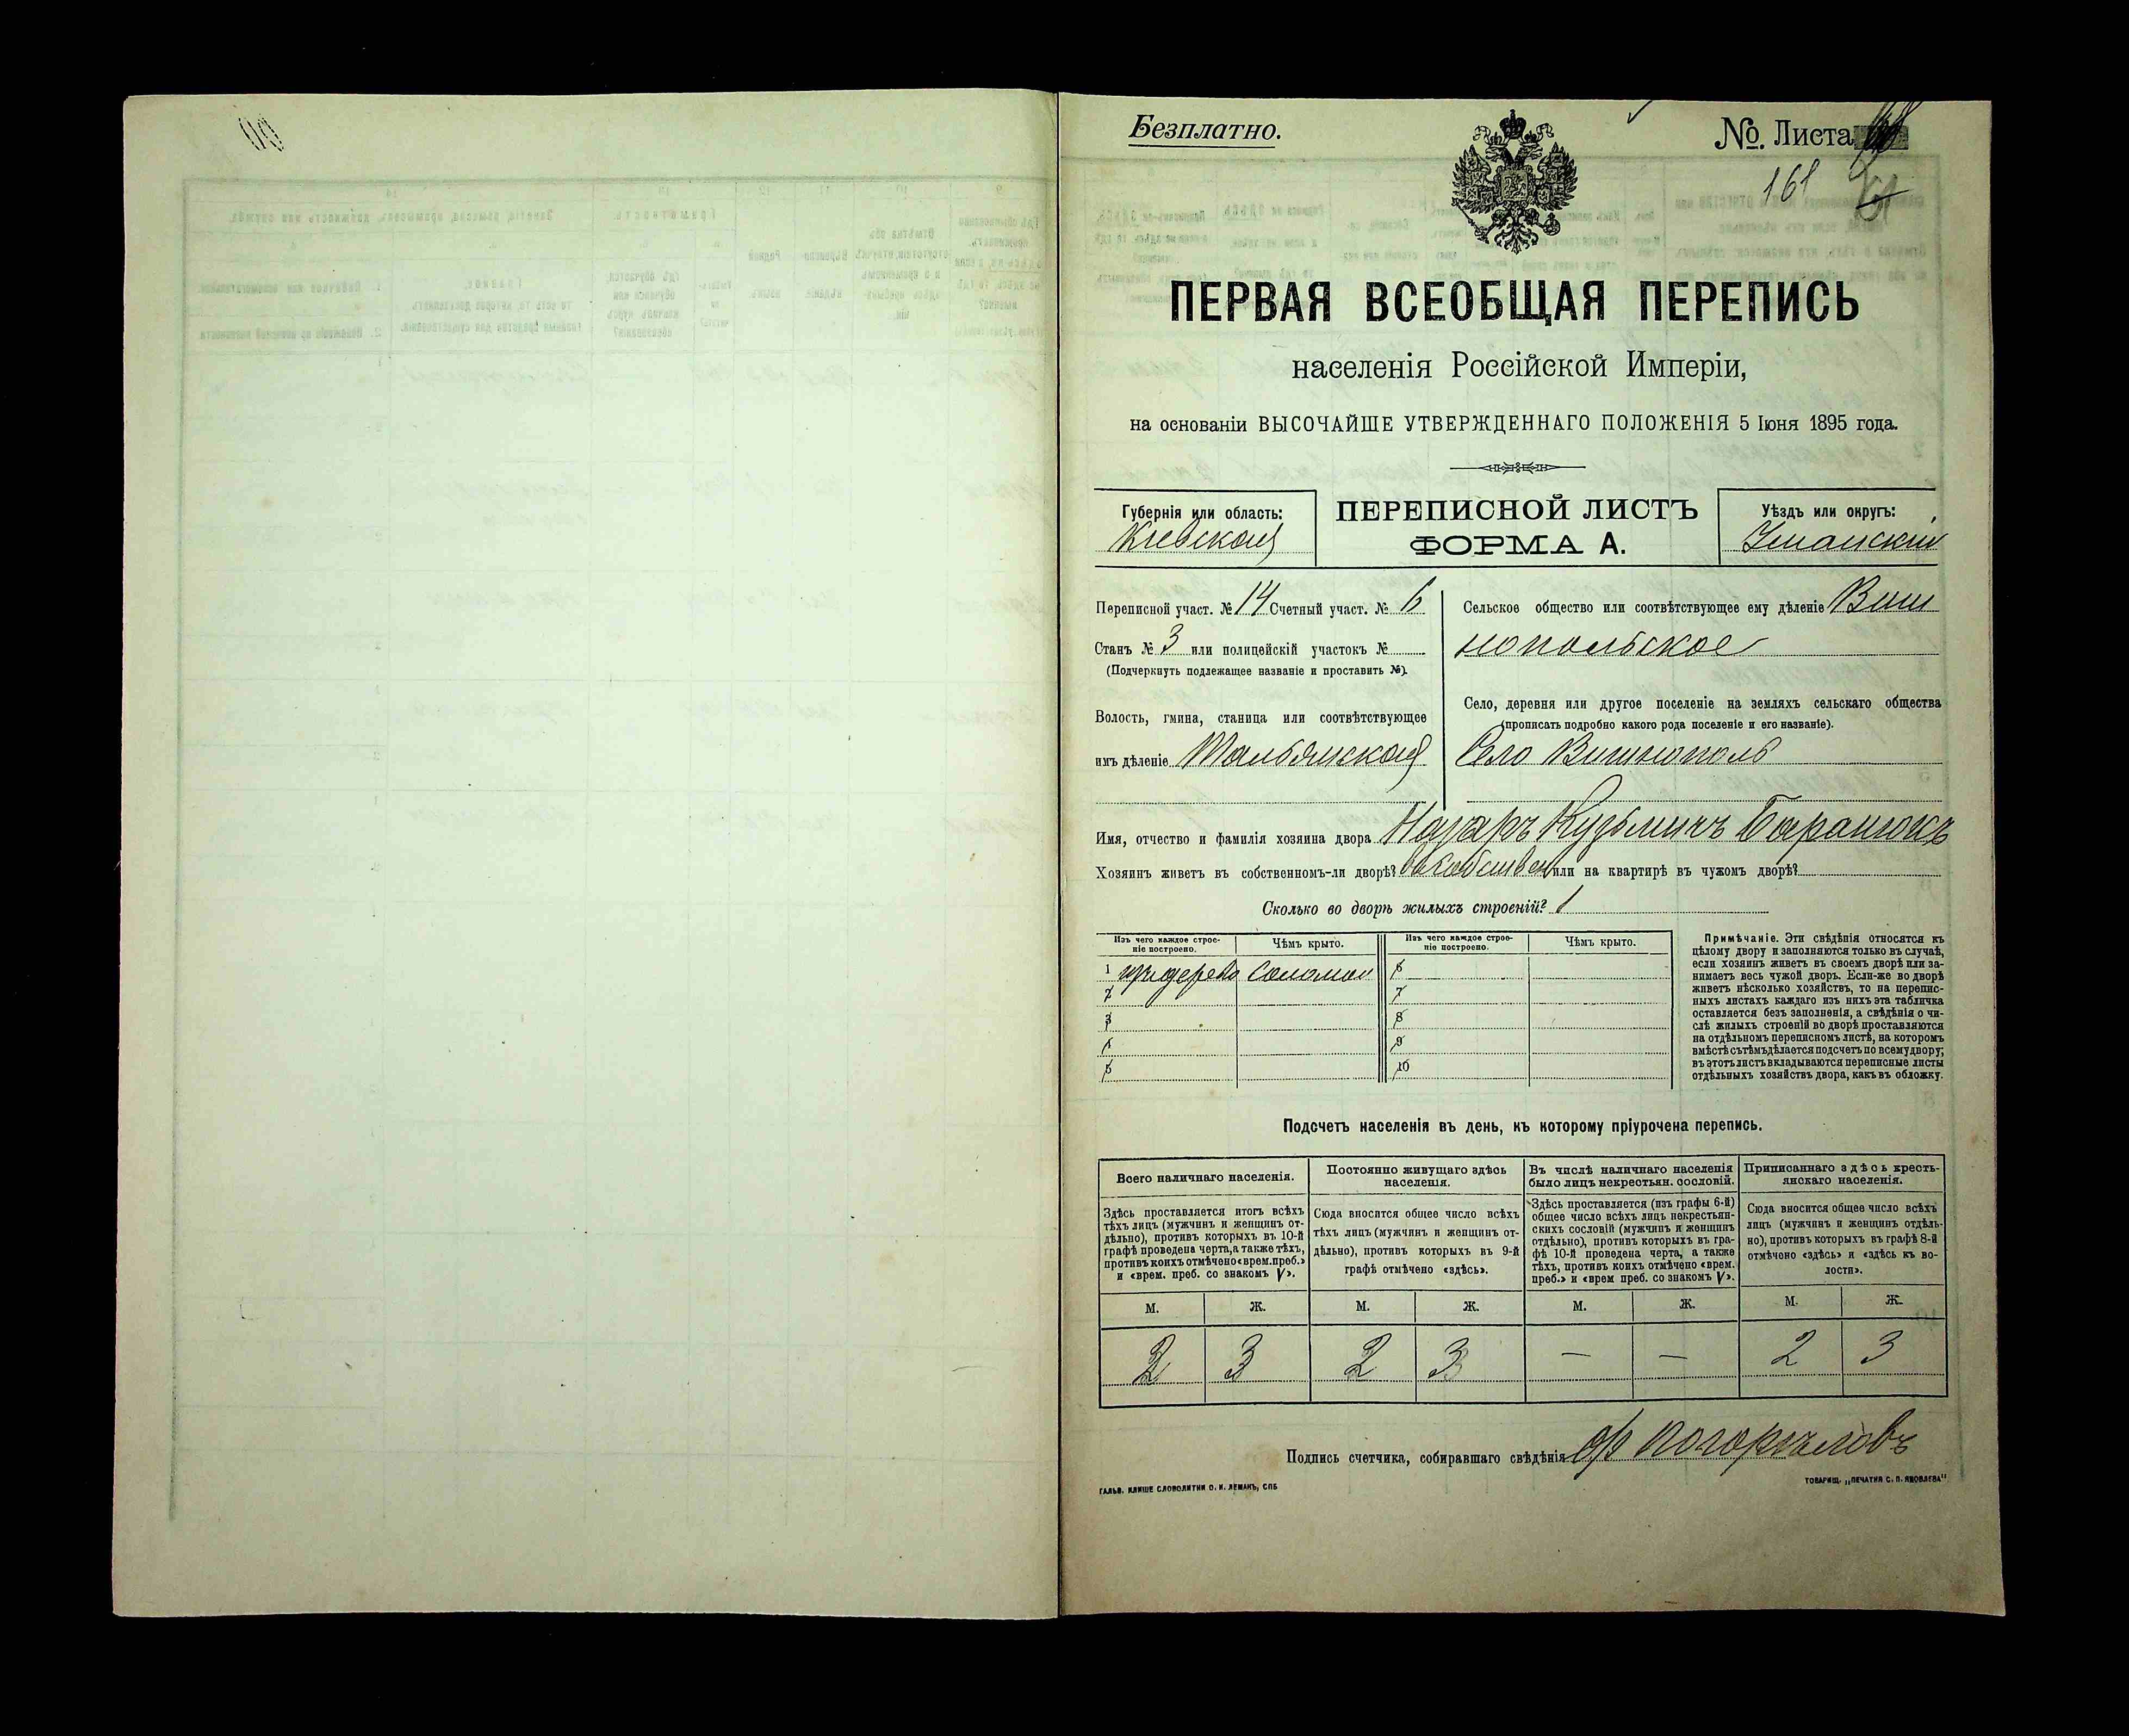 Безплатно.
№. Листа
161
ПЕРВАЯ ВСЕОБЩАЯ ПЕРЕПИСЬ
населенія Россійской Имперіи,
на основаніи ВЫСОЧАЙШЕ УТВЕРЖДЕННАГО ПОЛОЖЕНІЯ 5 Іюня 1895 года.
Губернія или область:
Кіевская
ПЕРЕПИСНОЙ ЛИСТЪ
ФОРМА А.
Уѣздъ или округъ:
Уманскій
Переписной участ. № 14 Счетный участ. № 6
Станъ № 3 или полицейскій участокъ №
(Подчеркнуть подлежащее названіе и проставить №).
Волость, гмина, станица или соотвѣтствующее
имъ дѣленіе Тальянская
Сельское общество или соотвѣтствующее ему дѣленіе Виш
нопольское
Село, деревня или другое поселеніе на земляхъ сельскаго общества
(прописать подробно какого рода поселеніе и его названіе).
Село Вишнополь
Имя, отчество и фамилія хозяина двора Назаръ Кузьмичъ Баранюкъ
Хозяинъ живетъ въ собственномъ-ли дворѣ? въ собствен или на квартирѣ въ чужомъ дворѣ?
Сколько во дворѣ жилыхъ строеній? 1
Изъ чего каждое строе-
ніе построено.
Чѣмъ крыто.
Изъ чего каждое строе-
ніе построено.
Чѣмъ крыто.
1 изъ дерева соломой 6
2 7
3 8
4 9
5 10
Примѣчаніе. Эти свѣдѣнія относятся къ
цѣлому двору и заполняются только въ случаѣ,
если хозяинъ живетъ въ своемъ дворѣ или за-
нимаетъ весь чужой дворъ. Если-же во дворѣ
живетъ нѣсколько хозяйствъ, то на перепис-
ныхъ листахъ каждаго изъ нихъ эта табличка
оставляется безъ заполненія, а свѣдѣнія о чи-
слѣ жилыхъ строеній во дворѣ проставляются
на отдѣльномъ переписномъ листѣ, на которомъ
вмѣстѣ съ тѣмъ дѣлается подсчетъ по всему двору;
въ этотъ листъ вкладываются переписные листы
отдѣльныхъ хозяйствъ двора, какъ въ обложку.
Подсчетъ населенія въ день, къ которому пріурочена перепись.
Всего наличнаго населенія.
Здѣсь проставляется итогъ всѣхъ
тѣхъ лицъ (мужчинъ и женщинъ от-
дѣльно), противъ которыхъ въ 10-й
графѣ проведена черта, а также тѣхъ,
противъ коихъ отмѣчено «врем. преб.»
и «врем. преб. со знакомъ V».
Постоянно живущаго здѣсь
населенія.
Сюда вносится общее число всѣхъ
тѣхъ лицъ (мужчинъ и женщинъ от-
дѣльно), противъ которыхъ въ 9-й
графѣ отмѣчено «здѣсь».
Въ числѣ наличнаго населенія
было лицъ некрестьян. сословій.
Здѣсь проставляется (изъ графы 6-й)
общее число всѣхъ лицъ некрестьян-
скихъ сословій (мужчинъ и женщинъ
отдѣльно), противъ которыхъ въ гра-
фѣ 10-й проведена черта, а также
тѣхъ, противъ коихъ отмѣчено «врем.
преб.» и «врем преб. со знакомъ V».
Приписаннаго здѣсь кресть-
янскаго населенія.
Сюда вносится общее число всѣхъ
лицъ (мужчинъ и женщинъ отдѣль-
но), противъ которыхъ въ графѣ 8-й
отмѣчено «здѣсь» и «здѣсь къ во-
лости».
М. Ж. М. Ж. М. Ж. М. Ж.
2 3 2 3 — — 2 3
Подпись счетчика, собиравшаго свѣдѣнія Погорѣловъ
ГАЛЬВ. КЛИШЕ СЛОВОЛИТНИ О. И. ЛЕМАНЪ, СПБ
ТОВАРИЩ. „ПЕЧАТНЯ С. П. ЯКОВЛЕВА"